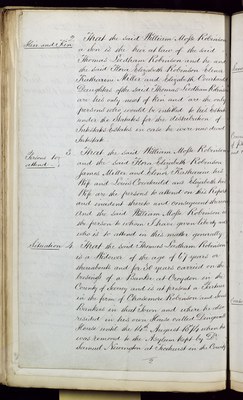 Heir and Next of Kin
2. That the said William Moffe Robinson
a son is the heir at law of the said
Thomas Leedham Robinson and he and
the said Flora Elizabeth Robinson Elenor
Katharine Miller and Elizabeth Cruikshank
Daughters of the said Thomas Leedham Robinson
are his only next of kin and are the only
persons who would be entitled to his Estate
under the Statutes for the distribution of
Intestates Estates in case he were now dead
Intestate.
Persons to attend
3. That the said William Moffe Robinson
and the said Flora Elizabeth Robinson
James Miller and Elenor Katharine his
Wife and Cruikshank and Elizabeth his
Wife are the persons to attend on this Report
and incident thereto and consequent thereon
and the said William Moffe Robinson is
the person to whom I have given liberty
to attend in this matter generally
Situation
4. That the said Thomas Leedham Robinson
is a Widower of the age of 67 years or
thereabouts and for 30 years carried on the
business of a Banker at Croydon in the
County of Surrey and is at present a Partner
in the firm of Robinson and
Bankers in that Town and where he also
resided in his own House called
House until the 14th August 1874 when he
was removed to the Asylum kept by Dr
Samuel Newington at Ticehurst in the County